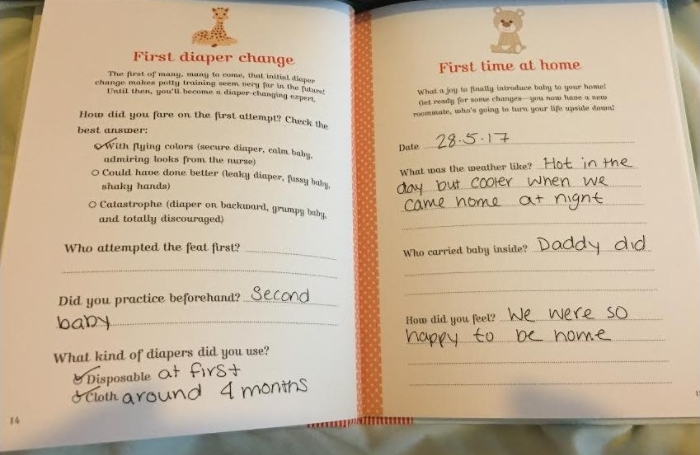 First diaper change
The first of many, many to come, that initial diaper
change makes potty training seem very far in the future!
Until then, you'll become a diaper-changing expert.
How did you fare on the first attempt? Check the
best answer:
With flying colors (secure diaper, calm baby,
admiring looks from the nurse)
Could have done better (leaky diaper, fussy baby,
shaky hands)
Catastrophe (diaper on backward, grumpy baby,
and totally discouraged)
Who attempted the feat first?
Did you practice beforehand? Second
baby
What kind of diapers did you use?
Disposable at first
Cloth around 4 months
14
First time at home
What a joy to finally introduce baby to your home!
Get ready for some changes—you now have a new
roommate, who's going to turn your life upside down!
Date 28.5.17
What was the weather like? Hot in the
day but cooler when we
came home at night
Who carried baby inside? Daddy did
How did you feel? We were so
happy to be home